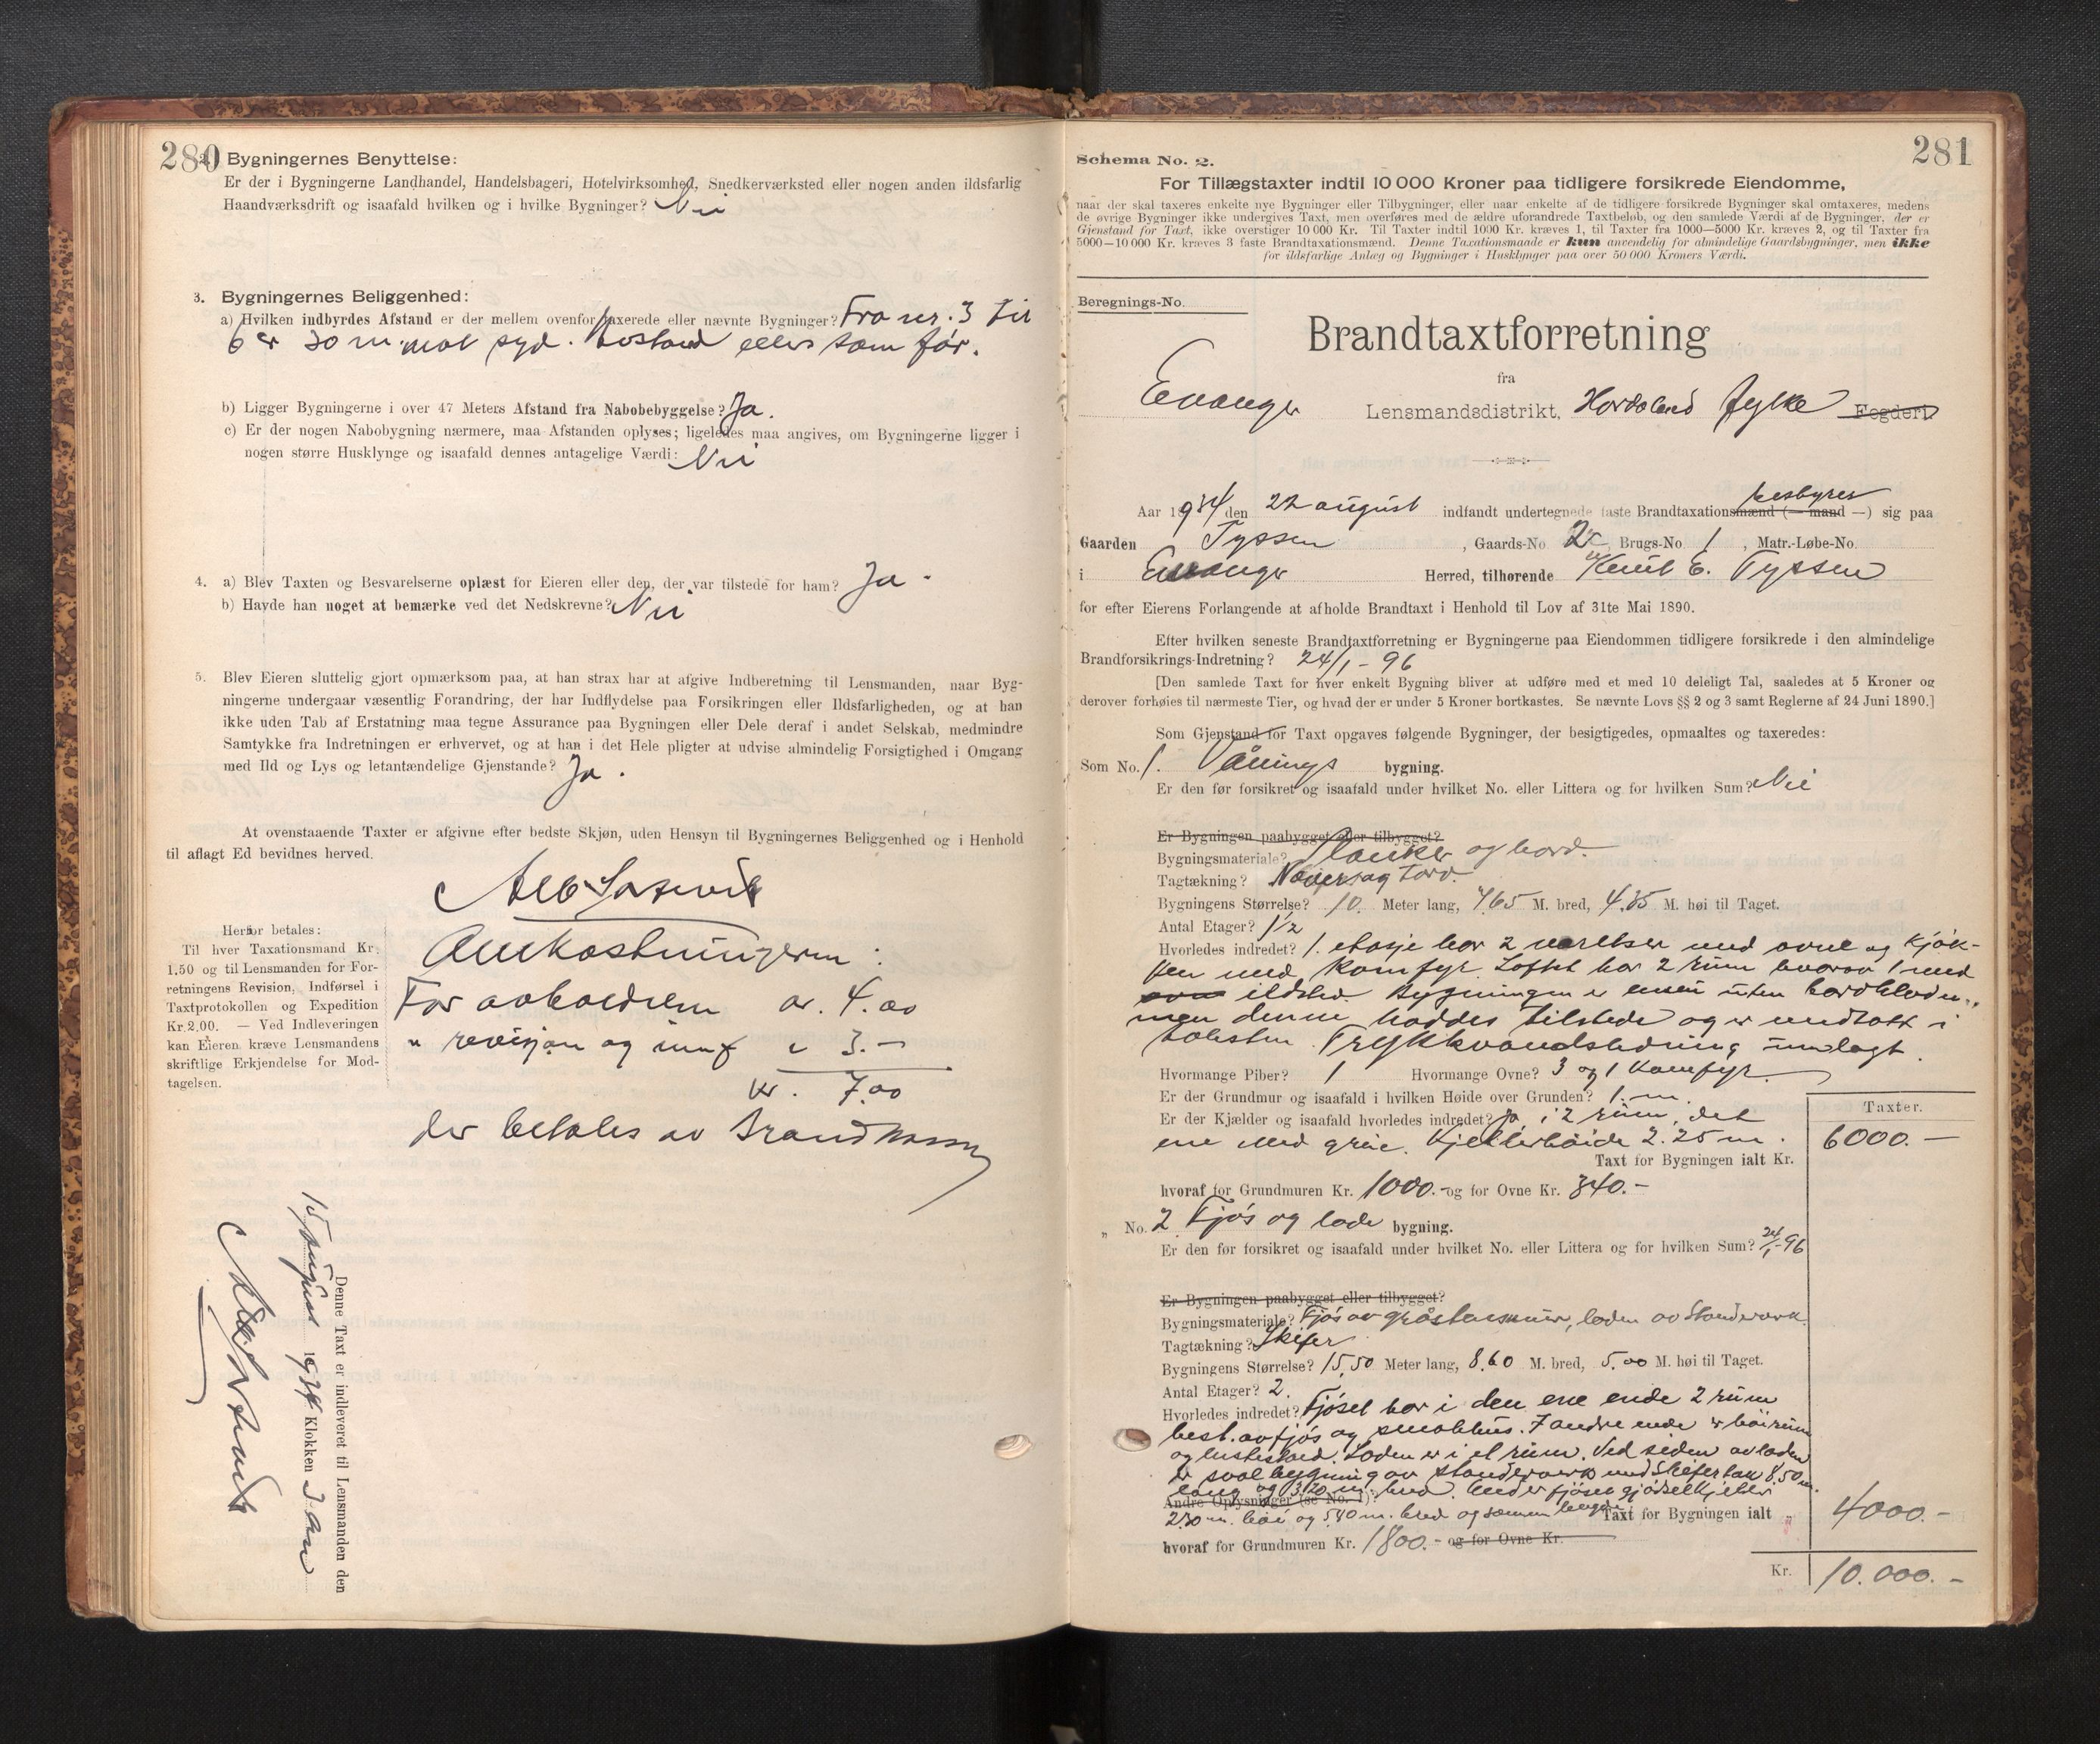 280
2. Bygningernes Benyttelse:
Er der i Bygningerne Landhandel, Handelsbageri, Hotelvirksomhed, Snedkerværksted eller nogen anden ildsfarlig
Haandværksdrift og isaafald hvilken og i hvilke Bygninger? Nei
3. Bygningernes Beliggenhed:
a) Hvilken indbyrdes Afstand er der mellem ovenfor taxerede eller nævnte Bygninger? Fra nr. 3 til
6 er 30 m. mot syd. Avstand ellers som før.
b) Ligger Bygningerne i over 47 Meters Afstand fra Nabobebyggelse? Ja.
c) Er der nogen Nabobygning nærmere, maa Afstanden oplyses; ligeledes maa angives, om Bygningerne ligger i
nogen større Husklynge og isaafald dennes antagelige Værdi: Nei
4. a) Blev Taxten og Besvarelserne oplæst for Eieren eller den, der var tilstede for ham? Ja.
b) Havde han noget at bemærke ved det Nedskrevne? Nei
5. Blev Eieren sluttelig gjort opmærksom paa, at han strax har at afgive Indberetning til Lensmanden, naar Byg-
ningerne undergaar væsentlig Forandring, der har Indflydelse paa Forsikringen eller Ildsfarligheden, og at han
ikke uden Tab af Erstatning maa tegne Assurance paa Bygningen eller Dele deraf i andet Selskab, medmindre
Samtykke fra Indretningen er erhvervet, og at han i det Hele pligter at udvise almindelig Forsigtighed i Omgang
med Ild og Lys og letantændelige Gjenstande? Ja.
At ovenstaaende Taxter er afgivne efter bedste Skjøn, uden Hensyn til Bygningernes Beliggenhed og i Henhold
til aflagt Ed bevidnes herved.
Herfor betales:
Til hver Taxationsmand Kr.
1.50 og til Lensmanden for For-
retningens Revision, Indførsel i
Taxtprotokollen og Expedition
Kr. 2.00. — Ved Indleveringen
kan Eieren kræve Lensmandens
skriftlige Erkjendelse for Mod-
tagelsen.
Omkostningerne:
For avholdelsen kr. 4.00
" revisjon og innf " 3.—
kr. 7.00
der betales av Brandkassen
Denne Taxt er indleveret til Lensmanden den
15 august 1934 Klokken 3
281
Schema No. 2.
For Tillægstaxter indtil 10 000 Kroner paa tidligere forsikrede Eiendomme,
naar der skal taxeres enkelte nye Bygninger eller Tilbygninger, eller naar enkelte af de tidligere forsikrede Bygninger skal omtaxeres, medens
de øvrige Bygninger ikke undergives Taxt, men overføres med de ældre uforandrede Taxtbeløb, og den samlede Værdi af de Bygninger, der er
Gjenstand for Taxt, ikke overstiger 10 000 Kr. Til Taxter indtil 1000 Kr. kræves 1, til Taxter fra 1000—5000 Kr. kræves 2, og til Taxter fra
5000—10 000 Kr. kræves 3 faste Brandtaxationsmænd. Denne Taxationsmaade er kun anvendelig for almindelige Gaardsbygninger, men ikke
for ildsfarlige Anlæg og Bygninger i Husklynger paa over 50 000 Kroners Værdi.
Beregnings-No.
Brandtaxtforretning
fra
Evanger Lensmandsdistrikt, Hordaland fylke Fogderi
bestyrer
Aar 1934 den 22 august indfandt undertegnede faste Brandtaxationsmænd (—mand—) sig paa
Gaarden Tyssen, Gaards-No. 2, Brugs-No. 1, Matr.-Løbe-No.
i Evanger Herred, tilhørende Knut E. Tyssen
for efter Eierens Forlangende at afholde Brandtaxt i Henhold til Lov af 31te Mai 1890.
Efter hvilken seneste Brandtaxtforretning er Bygningerne paa Eiendommen tidligere forsikrede i den almindelige
Brandforsikrings-Indretning? 24/1 - 96
[Den samlede Taxt for hver enkelt Bygning bliver at udføre med et med 10 deleligt Tal, saaledes at 5 Kroner og
derover forhøies til nærmeste Tier, og hvad der er under 5 Kroner bortkastes. Se nævnte Lovs §§ 2 og 3 samt Reglerne af 24 Juni 1890.]
Som Gjenstand for Taxt opgaves følgende Bygninger, der besigtigedes, opmaaltes og taxeredes:
Som No. 1. Vånings bygning.
Er den før forsikret og isaafald under hvilket No. eller Littera og for hvilken Sum? Nei
Er Bygningen paabygget eller tilbygget?
Bygningsmateriale? Planker og bord.
Tagtækning? Never og torv.
Bygningens Størrelse? 10. Meter lang, 7.65 M. bred, 4.85 M. høi til Taget.
Antal Etager? 1 1/2
Hvorledes indredet? 1. etasje har 2 værelser med ovne og kjøk-
ken med komfyr. Loftet har 2 rum hvorav 1 med
ovn ildsted. Bygningen er ennu uten bordkledn.,
men denne haddes tilstede og er medtatt i
taksten. Trykkvandsledning innlagt.
Hvormange Piber? 1 Hvormange Ovne? 3 og 1 komfyr.
Er der Grundmur og isaafald i hvilken Høide over Grunden? 1. m.
Er der Kjælder og isaafald hvorledes indredet? Ja, i 2 rum, det
ene med grue. Kjellerhøide 2.25 m.
Taxter.
Taxt for Bygningen ialt Kr. 6000.—
hvoraf for Grundmuren Kr. 1000.- og for Ovne Kr. 340.-
" No. 2 Fjøs og lade bygning.
Er den før forsikret og isaafald under hvilket No. eller Littera og for hvilken Sum? 24/1-96
Er Bygningen paabygget eller tilbygget?
Bygningsmateriale? Fjøs av gråstensmur, laden av Standerverk.
Tagtækning? Skifer
Bygningens Størrelse? 15.50 Meter lang, 8.60 M. bred, 5.00 M. høi til Taget.
Antal Etager? 2.
Hvorledes indredet? Fjøset har i den ene ende 2 rum
best. av fjøs og smalehus. I andre ende er høirum
og hestestald. Laden er i et rum. Ved siden av laden
er sval bygning av standerverk med skifertak 8.50 m.
lang og 3.20 m. bred. Under fjøset gjødselkjeller
Andre Oplysninger (se No. 1)?
2.30 m. høi og 5.40 m. bred og samme lengde
Taxt for Bygningen ialt " 4000.-
hvoraf for Grundmuren Kr. 1800.- og for Ovne Kr.
Kr. 10.000.-